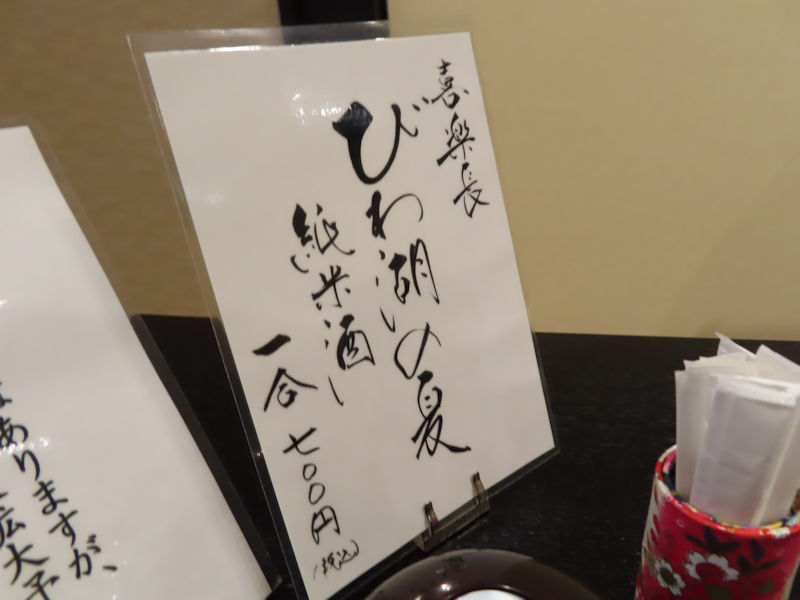 喜楽長
びわ湖の夏
純米酒
一合 七〇〇円
(税込)
はありますが、
広大予